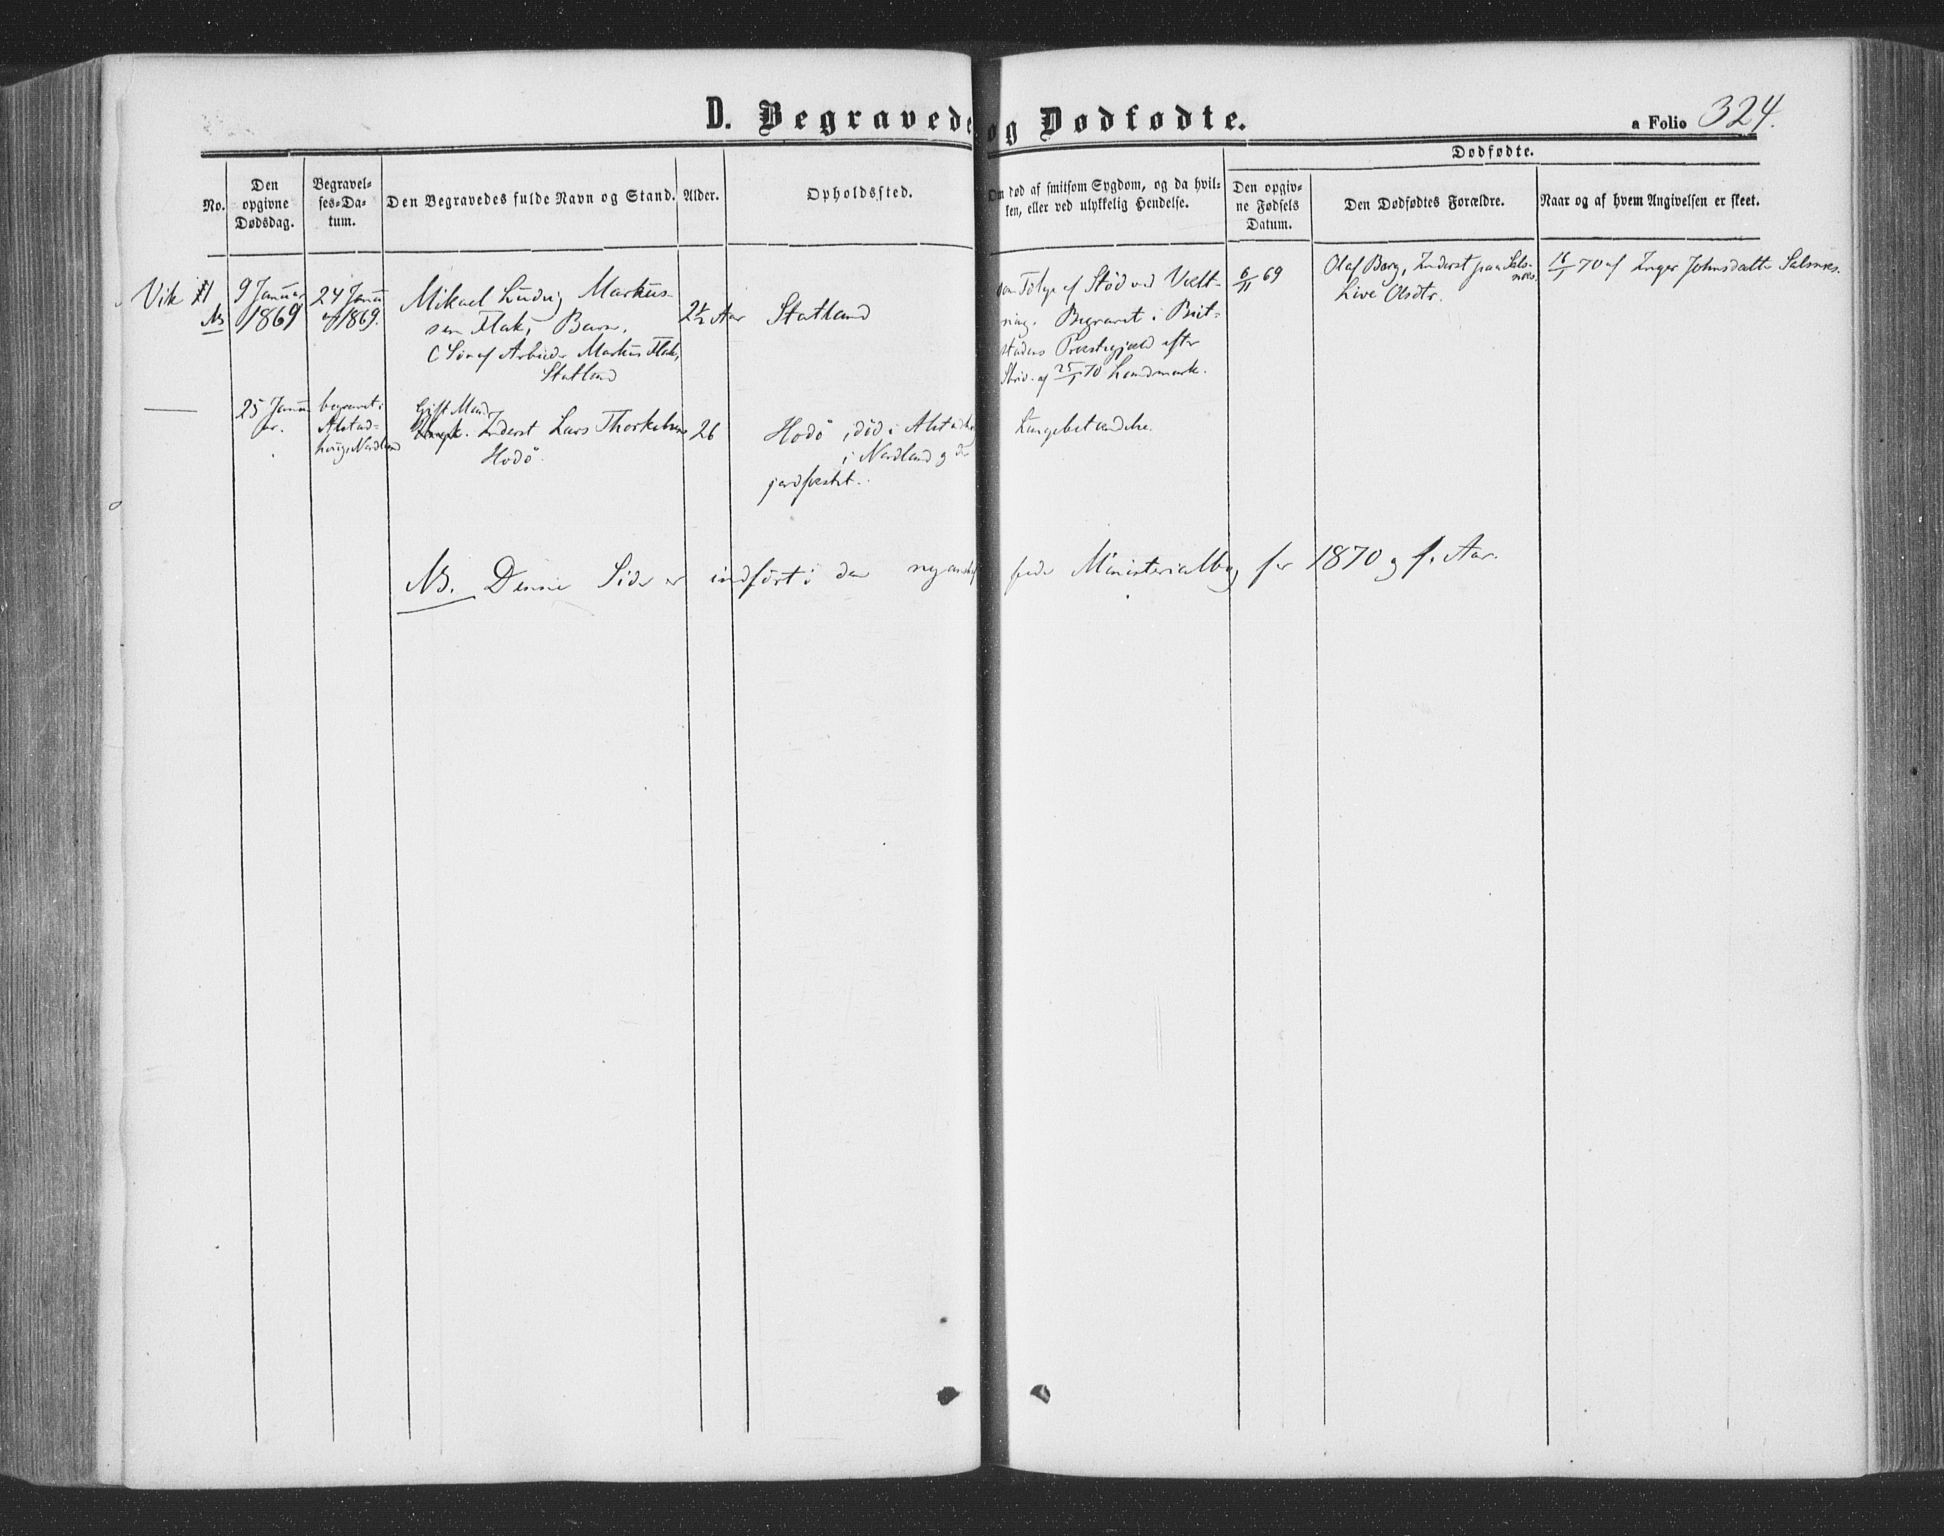 D. Begravede og Dødfødte.
a Folio 324.
Dødfødte.
No.
Den opgivne Dødsdag.
Begravel-ses-Da-tum.
Den Begravedes fulde Navn og Stand.
Alder.
Opholdssted.
Om død af smitsom Sygdom, og da hvil-
ken, eller ved ulykkelig Hendelse.
Den opgiv-ne Fødsels Datum.
Den Dødfødtes Forældre.
Naar og af hvem Angivelsen er skeet.
Vik 1
NB
9 Januar
1869
24 Janu
1869.
Mikael Ludvig Markus-
sen Flak, Barn.
(Søn af Arbeider Markus Flak,
Statland
2½ Aar
Statland
Følge af Stød ved Vælt-
ning. Begravet i Beit-
stadens Præstegjæld efter
Skriv. af 25/1 70 Landmark.
6/11 69
Olaf Berg, Inderst paa Sals-
nes.
Live Olsdtr.
16/1 70 af Inger Johnsdatter Salsnes.
25 Janu
ar.
begravet i
Alstad-
houg, Nordland
Gift Mand
Inderst Lars Thorkelsen
Hodø
26
Hodø, død i Alstadhoug
i Nordland og der
jordfæstet.
Lungebetændelse.
NB. Denne Side er indført i den nyanskaf
fede Ministerialbog for 1870 og f. Aar.